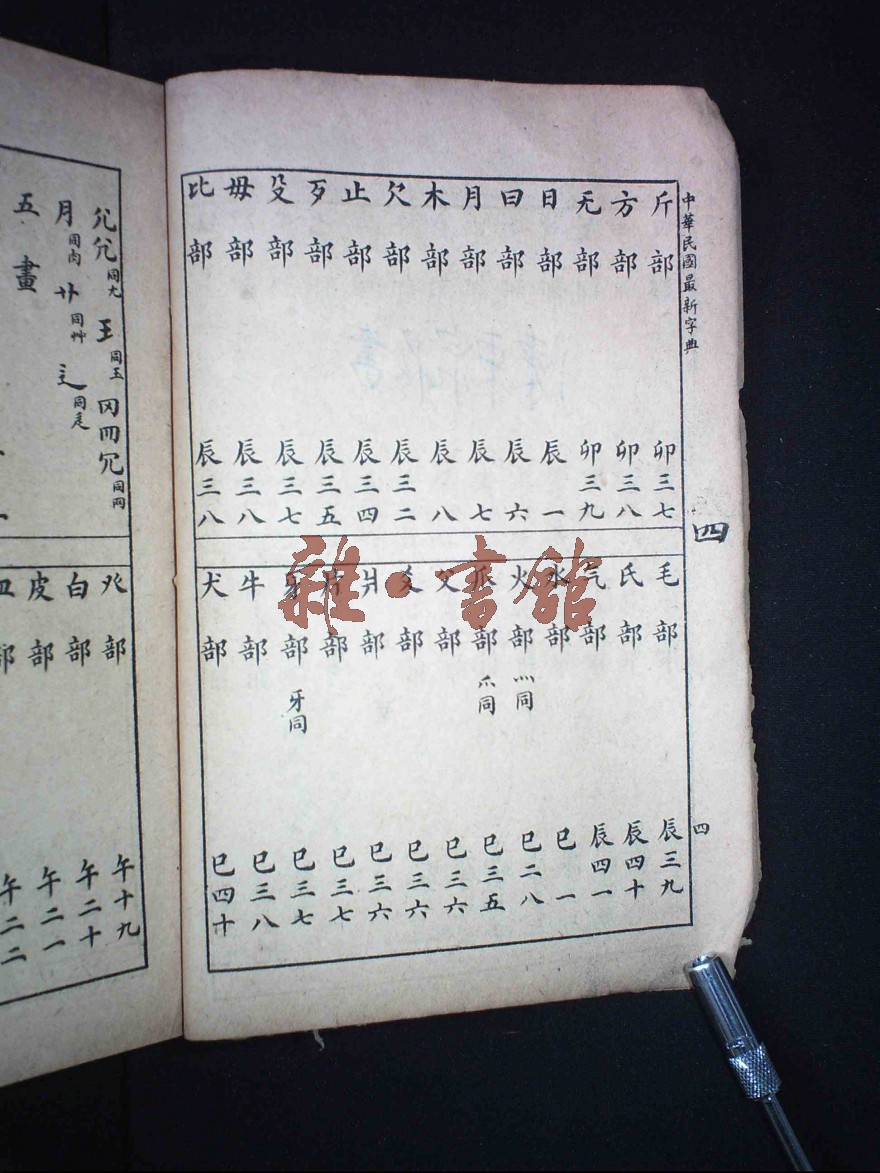 中華民國最新字典
四
四
斤部 卯三七
方部 卯三八
无部 卯三九
日部 辰一
曰部 辰六
月部 辰七
木部 辰八
欠部 辰三二
止部 辰三四
歹部 辰三五
殳部 辰三七
毋部 辰三八
比部 辰三八
毛部 辰三九
氏部 辰四十
气部 辰四一
水部 巳一
火部 灬同 巳二八
部 爫同 巳三五
父部 巳三六
爻部 巳三六
爿部 巳三六
片部 巳三七
牙部 牙同 巳三七
牛部 巳三八
犬部 巳四十
尣尢 同尢 王 同玉 冈罒冗 同网
月 同肉 艹 同艸 辶 同辵
五畫
癶部 午十九
白部 午二十
皮部 午二一
皿部 午二二
雜·書館